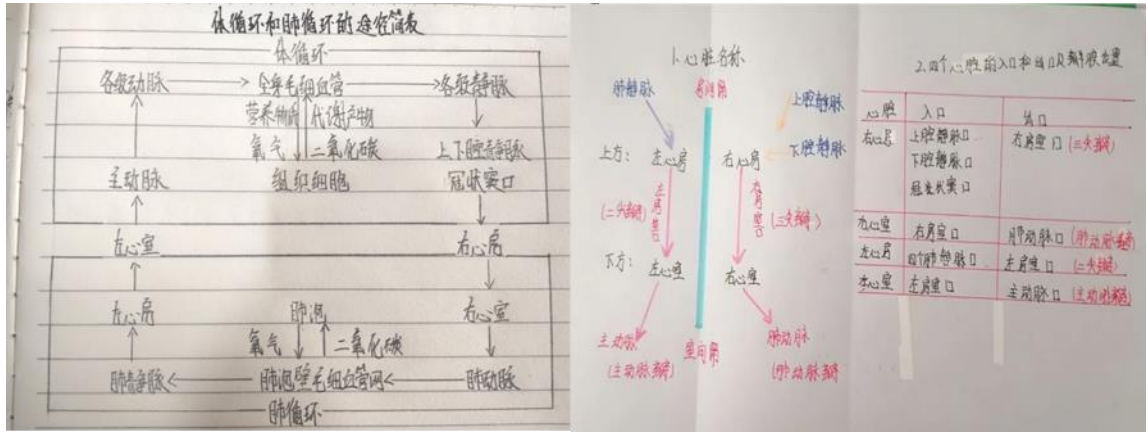 体循环和肺循环的途径简表
体循环
各级动脉 全身毛细血管 各级静脉
营养物质 代谢产物
氧气 二氧化碳 上下腔静脉
主动脉 组织细胞 冠状窦口
左心室 右心房
左心房 肺泡 右心室
氧气 二氧化碳
肺静脉 肺泡壁毛细血管网 肺动脉
肺循环
1.心脏名称
肺静脉 房间隔 上腔静脉
下腔静脉
上方: 左心房 右心房
(二尖瓣) 左房室 右房室 (三尖瓣)
下方: 左心室 右心室
主动脉 室间隔 肺动脉
(主动脉瓣) (肺动脉瓣)
2.四个心腔的入口和出口及瓣膜位置
心腔 入口 出口
右心房 上腔静脉口 右房室口 (三尖瓣)
下腔静脉口
冠状窦口
右心室 右房室口 肺动脉口 (肺动脉瓣)
左心房 四个肺静脉口 左房室口 (二尖瓣)
左心室 左房室口 主动脉口 (主动脉瓣)